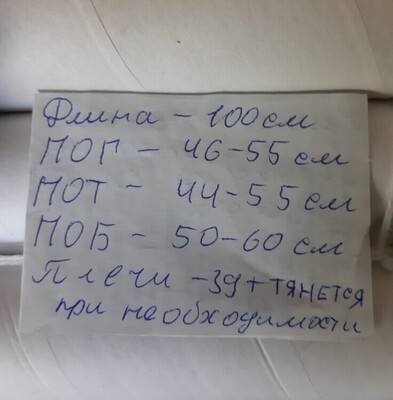 Длина - 100 см
ПОГ - 46-55 см
ПОТ - 44-55 см
ПОБ - 50-60 см
Плечи - 39 + ТЯНЕТСЯ
при необходимости